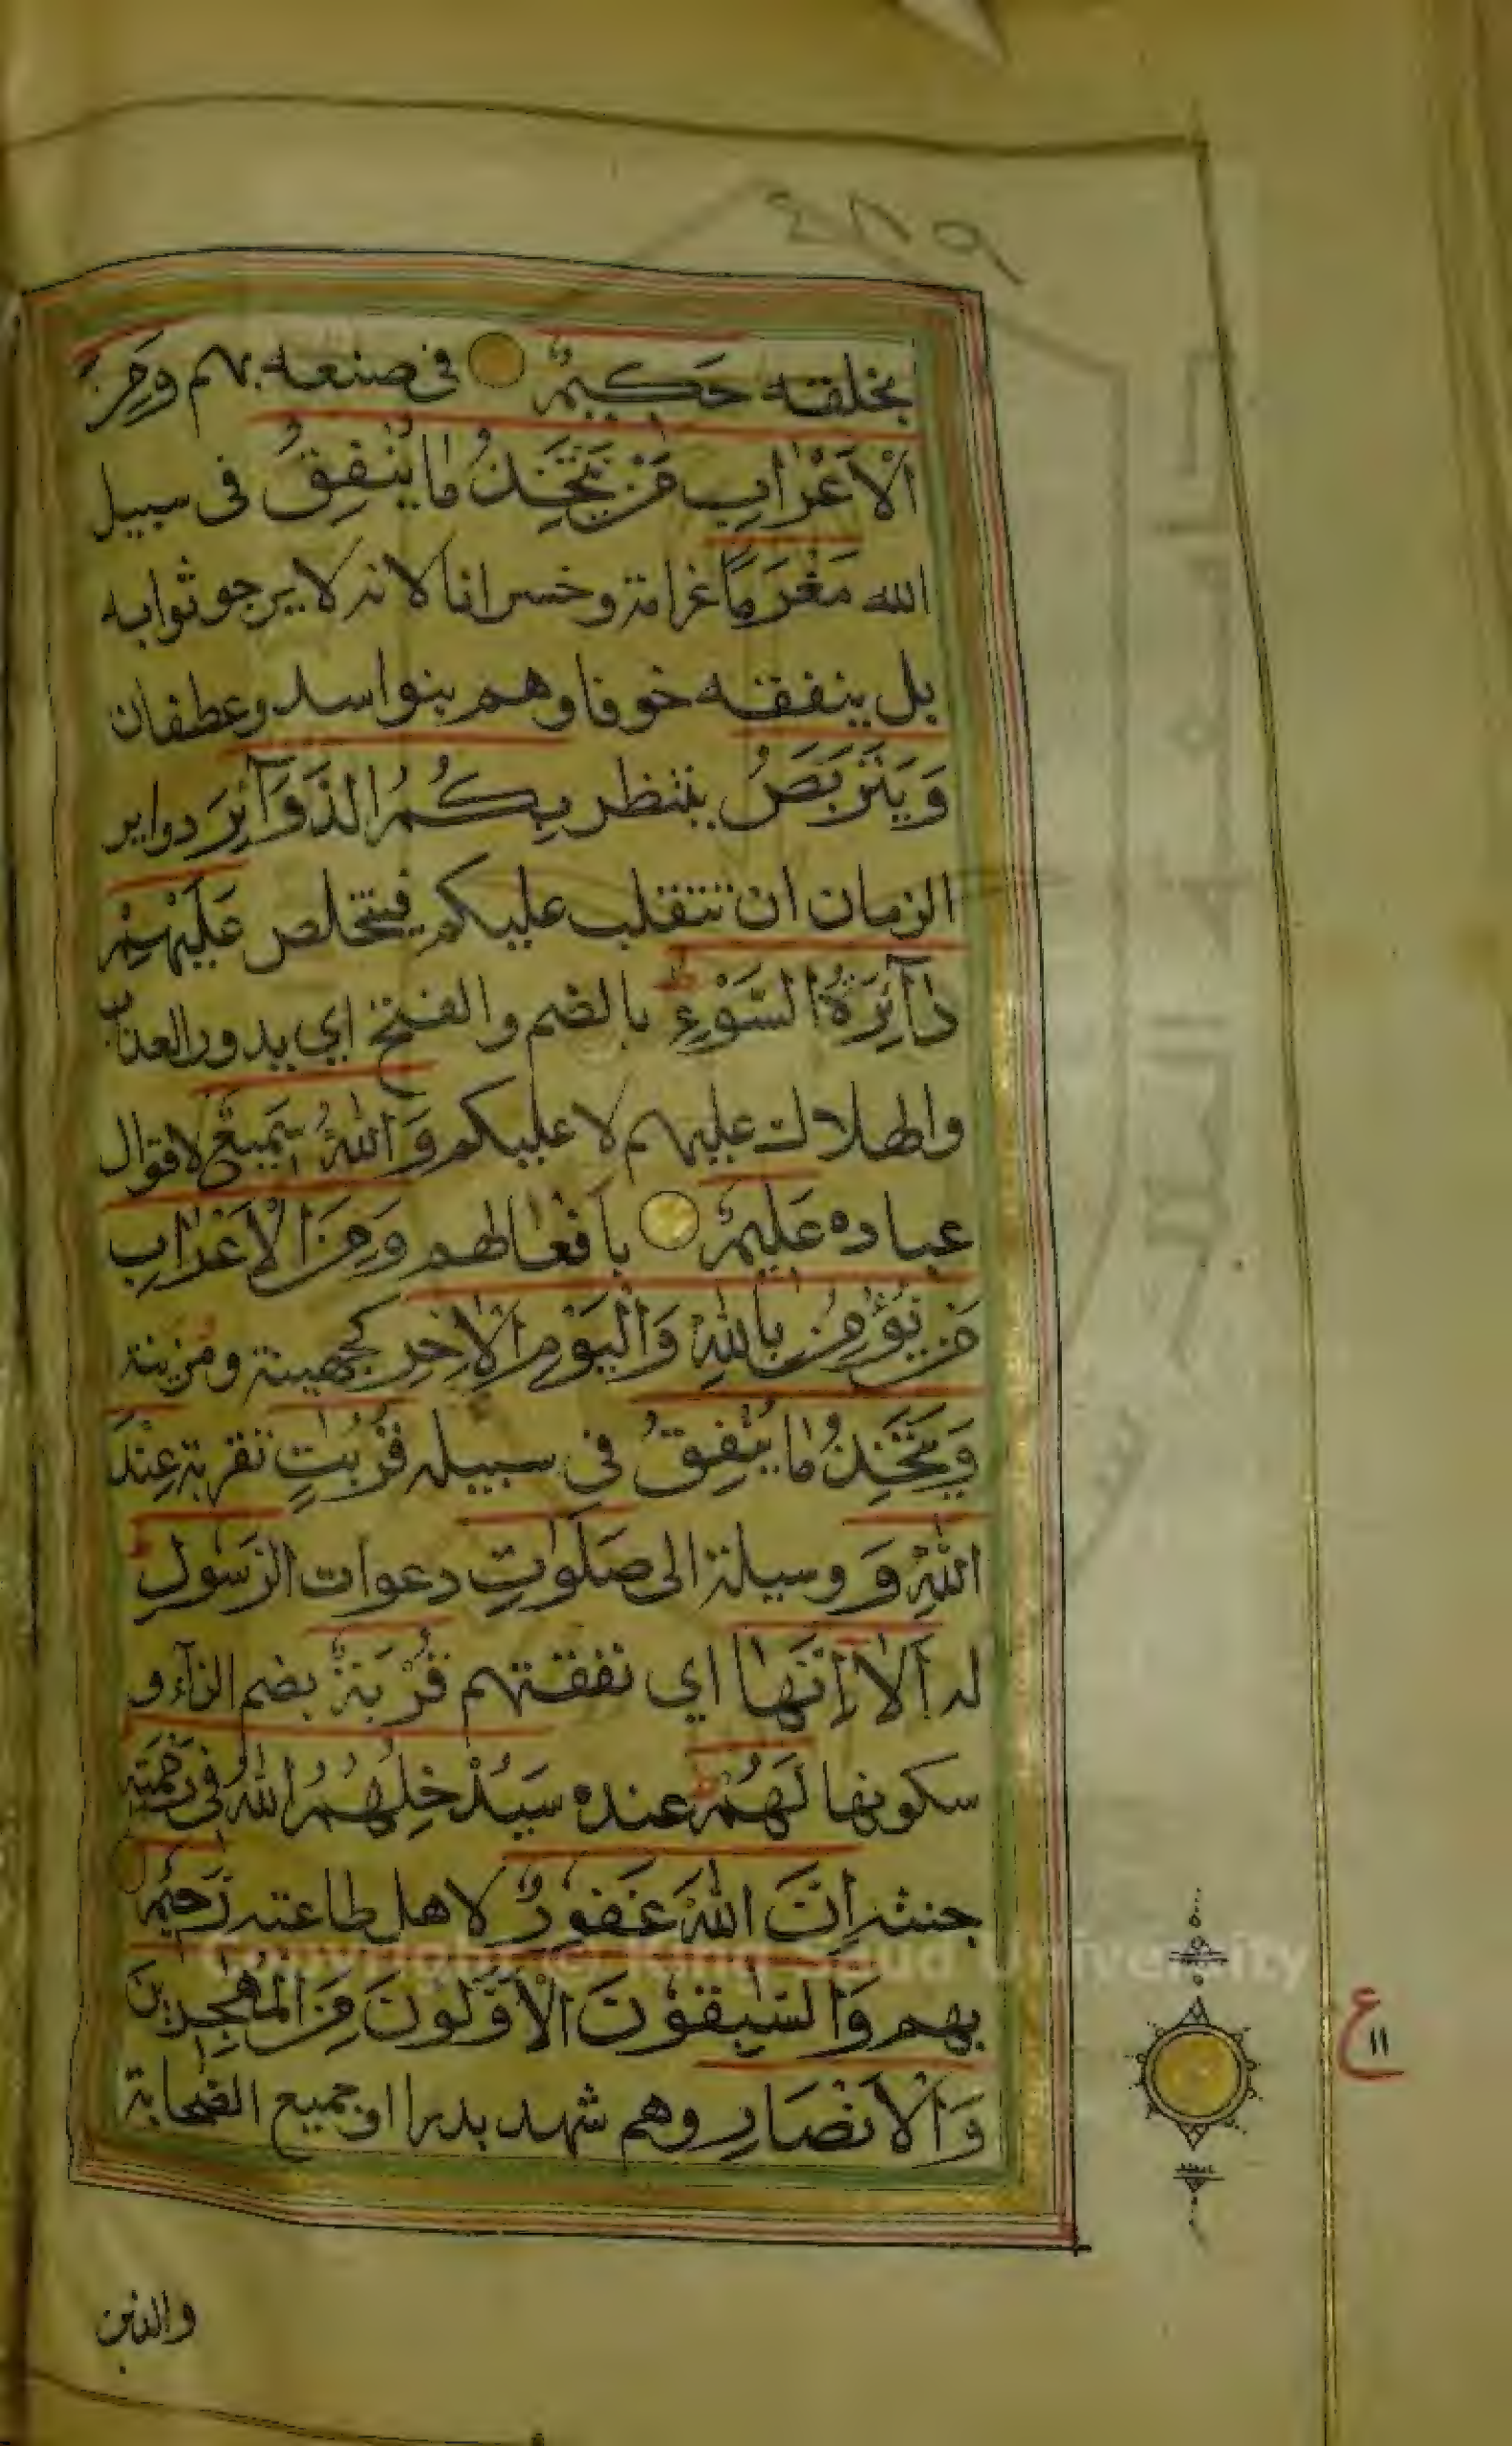 ٢٨٩
بخلقه حَكِيمٌ في صنعه بهم وَمِنَ
الْاَعْرَابِ مَنْ يَتَّخِذُ مَا يُنْفِقُ فى سبيل
الله مَغْرَمًا غرامة وخسرانا لانه لا يرجو ثوابه
بل ينفقه خوفا وهم بنو اسد وعطفان
وَيَتَرَبَّصُ ينتظر بِكُمُ الدَّوَآئِرَ دواير
الزمان ان تنقلب عليكم فيتخلص عَلَيْهِمْ
دَآئِرَةُ السَّوْءِ ط بالضم والفتح اي يدور العذاب
والهلاك عليهم لا عليكم وَاللهُ سَمِيعٌ لاقوال
عباده عَلِيمٌ بافعالهم وَمِنَ الْاَعْرَابِ
مَنْ يُؤْمِنُ بِاللهِ وَالْيَوْمِ الْاٰخِرِ كجهينة ومُزينة
وَيَتَّخِذُ مَا يُنْفِقُ فى سبيله قُرُبٰتٍ تقربة عِنْدَ
اللهِ وَ وسيلة الى صَلَوٰتِ دعوات الرَّسُولِ ط
له اَلَا اِنَّهَا اي نفقتهم قُرْبَةٌ بضم الرآء و
سكونها لَهُمْ ط عنده سَيُدْخِلُهُمُ اللهُ فى رَحْمَتِهِ
جنته اِنَّ اللهَ غَفُورٌ لاهل طاعته رَحِيمٌ
بهم وَالسّٰبِقُونَ الْاَوَّلُونَ مِنَ الْمُهٰجِرِينَ
وَالْاَنْصَارِ وهم شهد بدرا او جميع الصحابة
والذين
ع
١١
Copyright © King Saud University